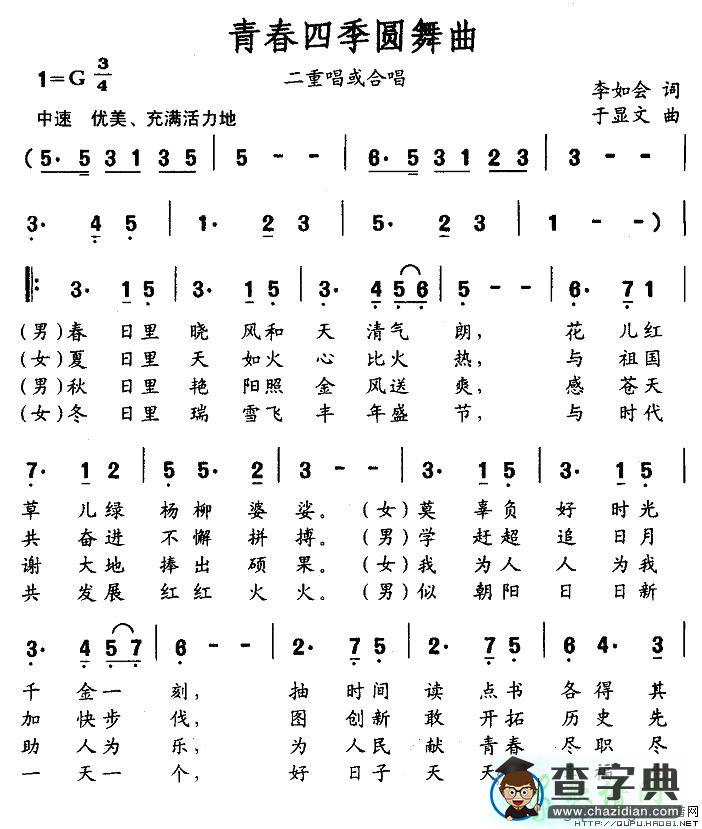 青春四季圆舞曲
1=G 3/4
二重唱或合唱
李如会 词
中速 优美、充满活力地
于显文 曲
( 5· 5 3 1 3 5 | 5 - - | 6· 5 3 1 2 3 | 3 - - |
3· 4 5 | 1· 2 3 | 5· 2 3 | 1 - - ) |
‖: 3· 1 5 | 3· 1 5 | 3· 4 5 6 | 5 - - | 6· 7 1 |
(男)春 日里 晓 风和 天 清气 朗, 花 儿红
(女)夏 日里 天 如火 心 比火 热, 与 祖国
(男)秋 日里 艳 阳照 金 风送 爽, 感 苍天
(女)冬 日里 瑞 雪飞 丰 年盛 节, 与 时代
7· 1 2 | 5 5· 2 | 3 - - | 3· 1 5 | 3· 1 5 |
草 儿绿 杨柳 婆 娑。(女)莫 辜负 好 时光
共 奋进 不懈 拼 搏。(男)学 赶超 追 日月
谢 大地 捧出 硕 果。(女)我 为人 人 为我
共 发展 红红 火 火。(男)似 朝阳 日 日新
3· 4 5 7 | 6 - - | 2· 7 5 | 2· 7 5 | 6 4· 3 |
千 金一 刻, 抽 时间 读 点书 各得 其
加 快步 伐, 图 创新 敢 开拓 历史 先
助 人为 乐, 为 人民 献 青春 尽职 尽
一 天一 个, 好 日子 天 天
查字典
www.chazidian.com
HTTP://QUPU.HAO81.NET